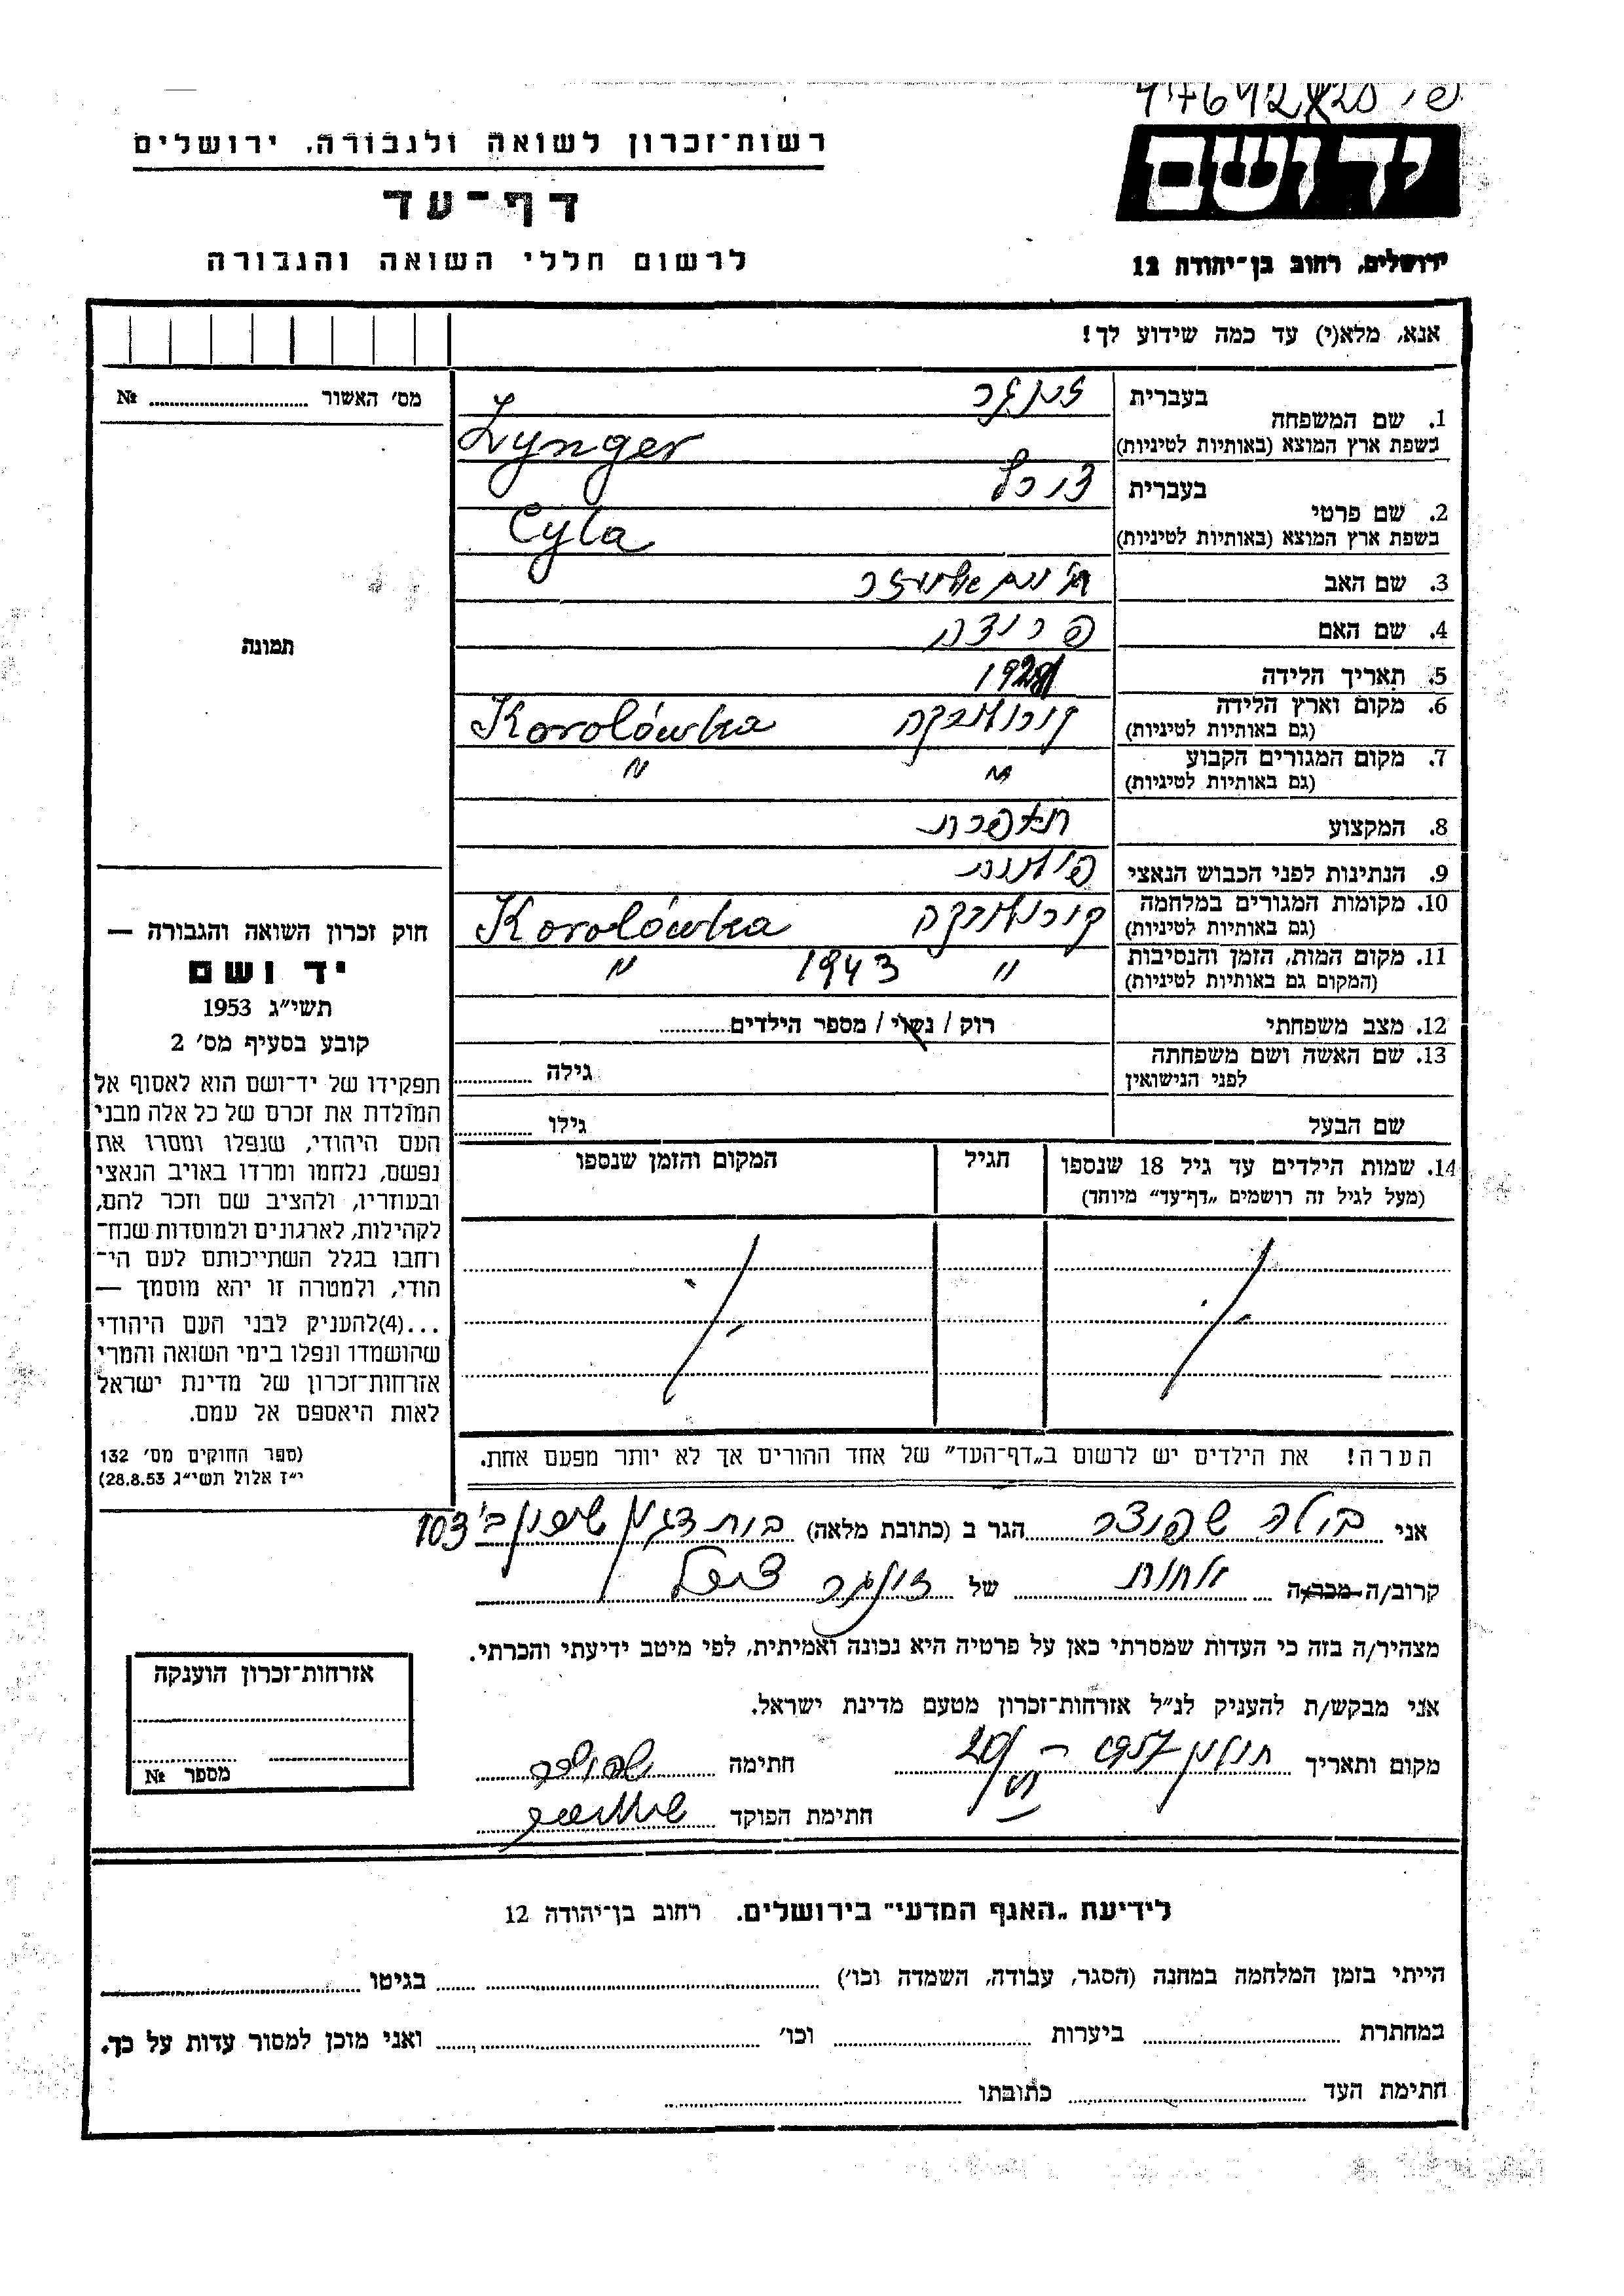 רשות־זכרון לשואה ולגבורה, ירושלים
דף־עד
לרשום חללי השואה והגבורה
ידושם
ירושלים, רחוב בן־יהודה 12
אנא, מלא(י) עד כמה שידוע לך!
מס׳ האשור № 
תמונה
1. שם המשפחה בעברית זינגר
בשפת ארץ המוצא (באותיות לטיניות) Zynger
2. שם פרטי בעברית
בשפת ארץ המוצא (באותיות לטיניות) Cyla
3. שם האב
4. שם האם
5. תאריך הלידה
6. מקום וארץ הלידה (גם באותיות לטיניות) קורולובקה Korolówka
7. מקום המגורים הקבוע (גם באותיות לטיניות) " "
8. המקצוע תופרת
9. הנתינות לפני הכבוש הנאצי פולנית
10. מקומות המגורים במלחמה (גם באותיות לטיניות) קורולובקה Korolówka
11. מקום המות, הזמן והנסיבות (המקום גם באותיות לטיניות) " 1943 "
12. מצב משפחתי רוק / נשוי / מספר הילדים
13. שם האשה ושם משפחתה לפני הנישואין גילה
שם הבעל גילו
14. שמות הילדים עד גיל 18 שנספו הגיל המקום והזמן שנספו
(מעל לגיל זה רושמים „דף־עד״ מיוחד)
הערה! את הילדים יש לרשום ב„דף־העד״ של אחד ההורים אך לא יותר מפעם אחת.
חוק זכרון השואה והגבורה —
יד ושם
תשי״ג 1953
קובע בסעיף מס׳ 2
תפקידו של יד־ושם הוא לאסוף אל
המולדת את זכרם של כל אלה מבני
העם היהודי, שנפלו ומסרו את
נפשם, נלחמו ומרדו באויב הנאצי
ובעוזריו, ולהציב שם וזכר להם,
לקהילות, לארגונים ולמוסדות שנח־
רחבו בגלל השתייכותם לעם הי־
הודי, ולמטרה זו יהא מוסמך —
...(4)להעניק לבני העם היהודי
שהושמדו ונפלו בימי השואה והמרי
אזרחות־זכרון של מדינת ישראל
לאות היאספם אל עמם.
(ספר החוקים מס׳ 132
י״ז אלול תשי״ג 28.8.53)
אני שפיצר הגר ב (כתובת מלאה) בית דגן שיכון ב׳ 103
קרוב/ה מכר/ה אחות של זינגר
מצהיר/ה בזה כי העדות שמסרתי כאן על פרטיה היא נכונה ואמיתית, לפי מיטב ידיעתי והכרתי.
אני מבקש/ת להעניק לנ״ל אזרחות־זכרון מטעם מדינת ישראל.
מקום ותאריך 1957 חתימה
חתימת הפוקד
אזרחות־זכרון הוענקה
מספר №
לידיעת „האגף המדעי״ בירושלים, רחוב בן־יהודה 12
הייתי בזמן המלחמה במחנה (הסגר, עבודה, השמדה וכו׳) בגיטו
במחתרת ביערות וכו׳ ואני מוכן למסור עדות על כך.
חתימת העד כתובתו